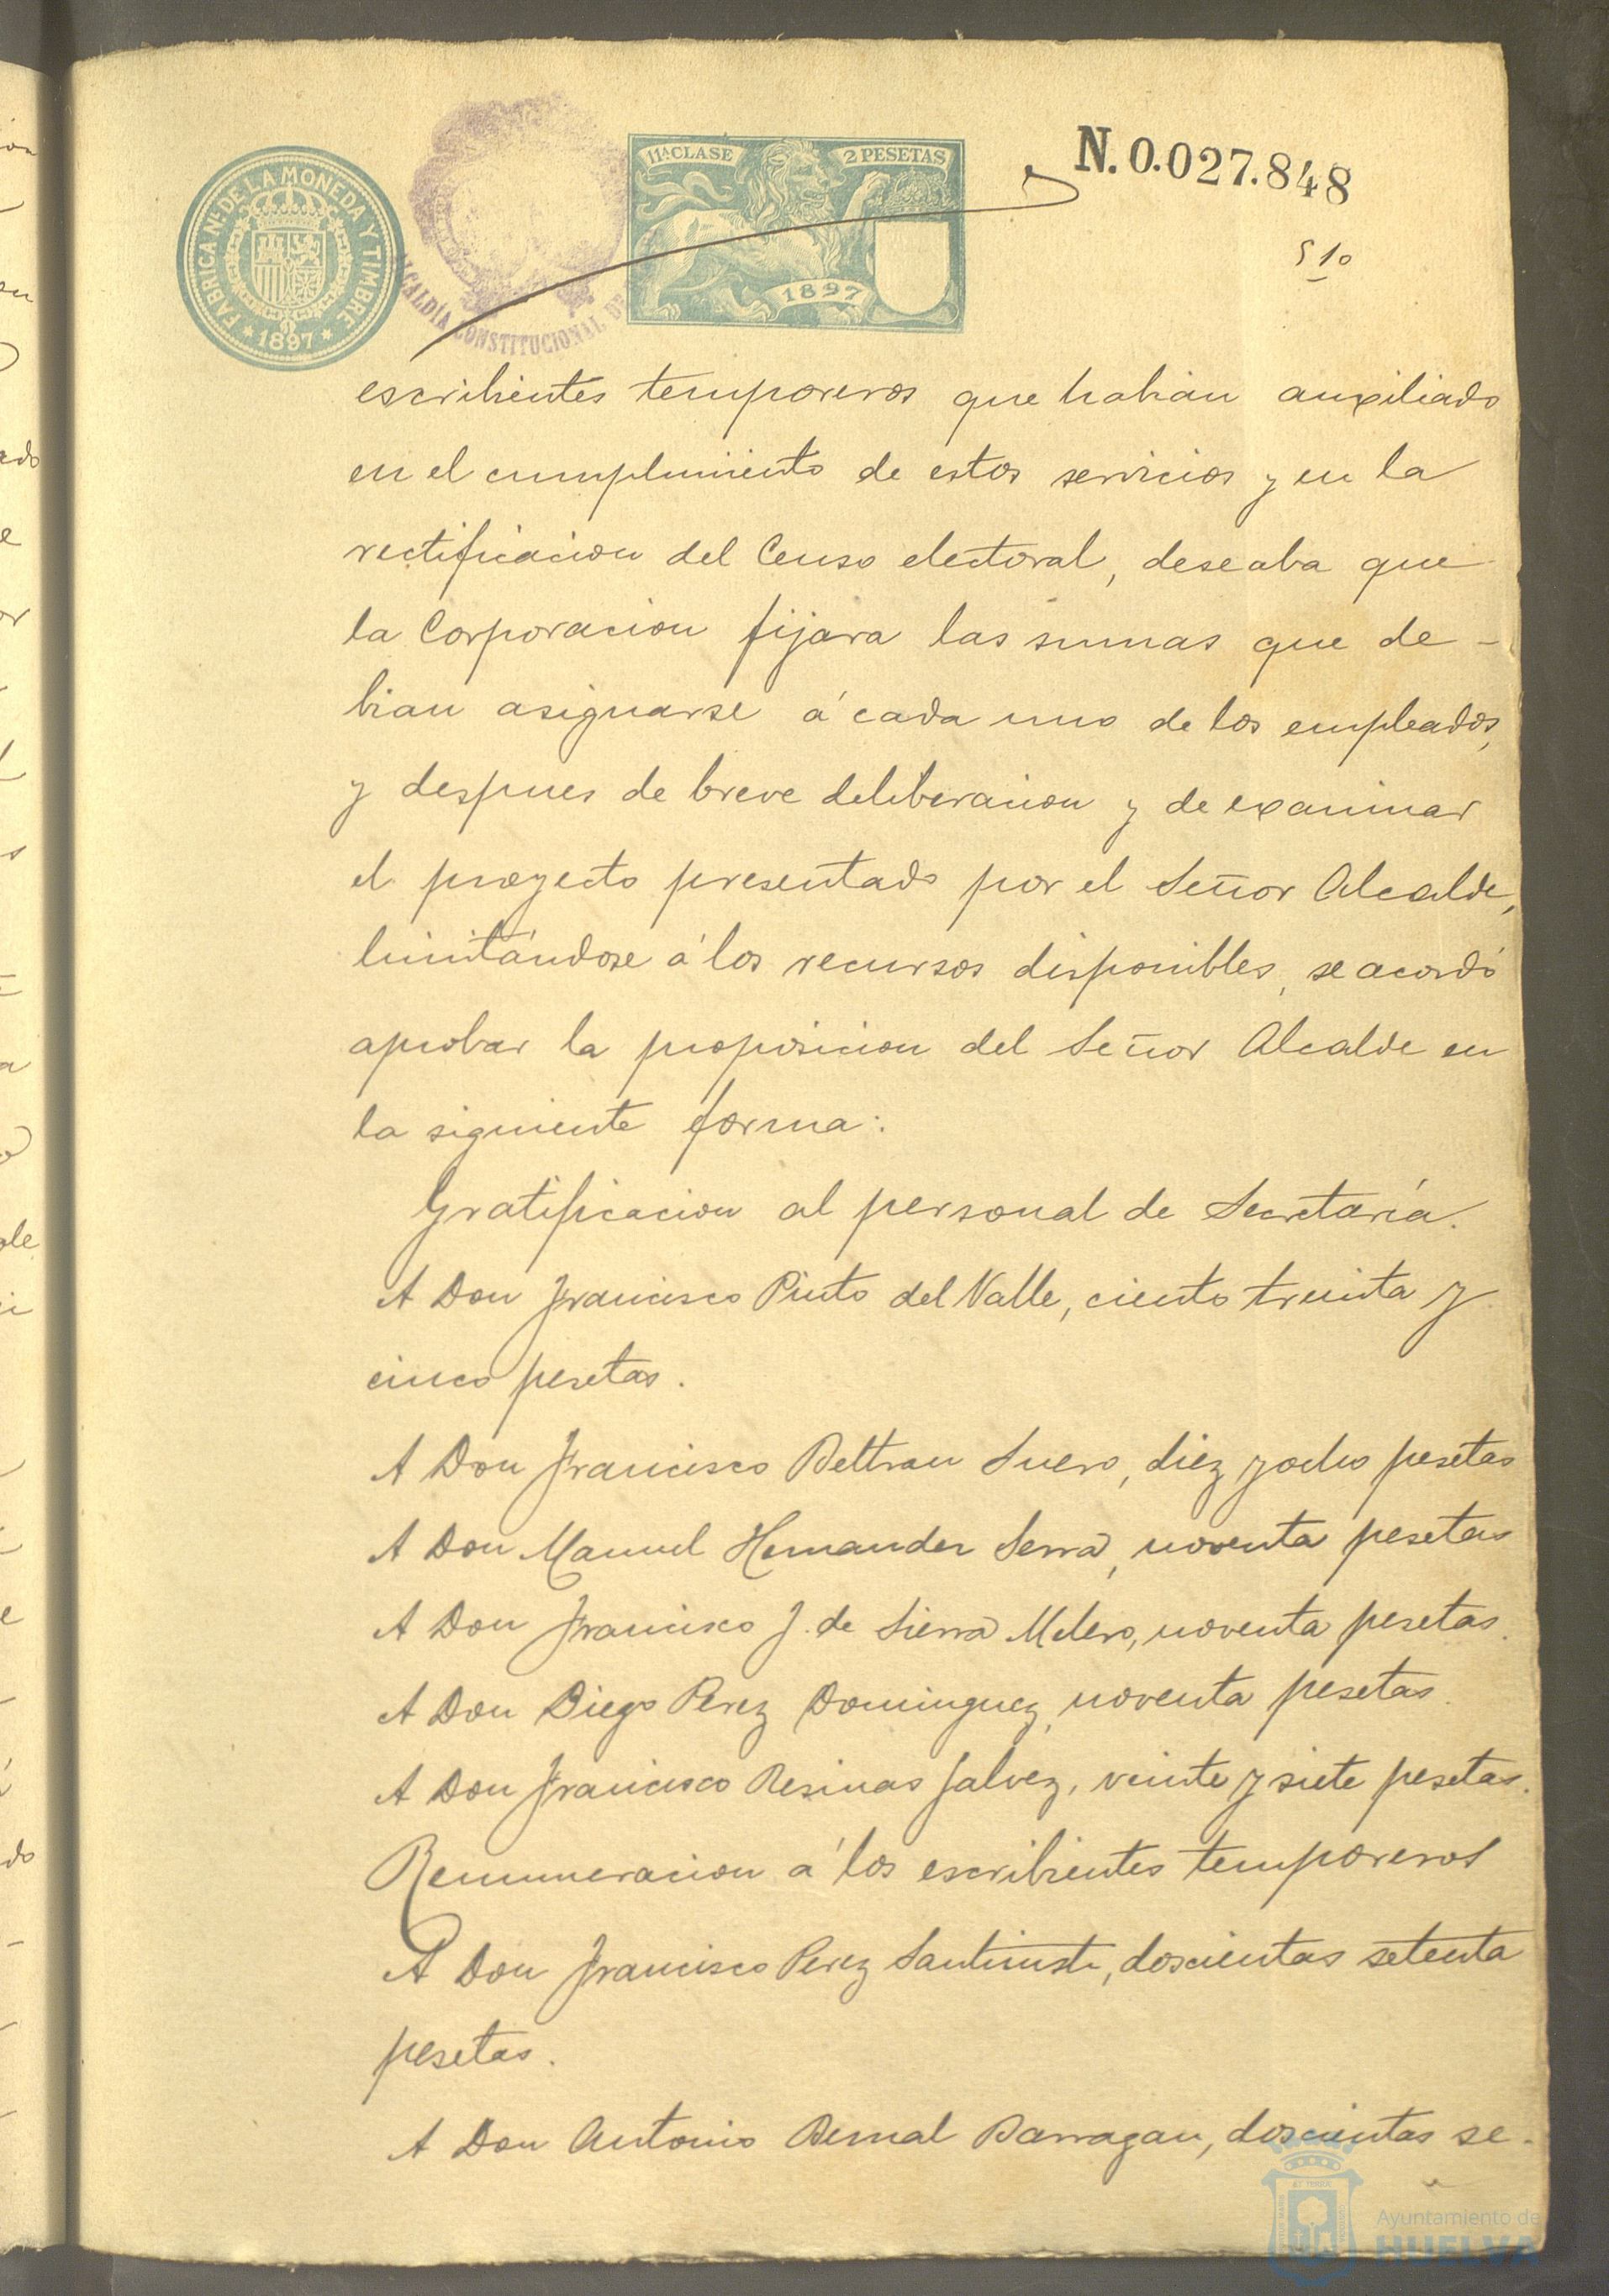 FABRICA N.L DE LA MONEDA Y TIMBRE
* 1897 *
ALCALDÍA CONSTITUCIONAL DE
11ª CLASE 2 PESETAS
1897
N. 0.027.848
510
escribientes temporeros que habian auxiliado
en el cumplimiento de estos servicios y en la
rectificacion del Censo electoral, deseaba que
la Corporacion fijara las sumas que de-
bian asignarse á cada uno de los empleados,
y despues de breve deliberacion y de examinar
el proyecto presentado por el Señor Alcalde,
limitándose á los recursos disponibles, se acordó
aprobar la proposicion del Señor Alcalde en
la siguiente forma:
Gratificacion al personal de Secretaría.
A Don Francisco Pinto del Valle, ciento treinta y
cinco pesetas.
A Don Francisco Beltran Suero, diez y ocho pesetas
A Don Manuel Hernandez Serra, noventa pesetas
A Don Francisco J. de Sierra Melero, noventa pesetas.
A Don Diego Perez Dominguez, noventa pesetas.
A Don Francisco Resinas Galvez, veinte y siete pesetas.
Remuneracion á los escribientes temporeros
A Don Francisco Perez Santiuste, doscientas setenta
pesetas.
A Don Antonio Bernal Barragan, doscientas se-
Ayuntamiento de
HUELVA